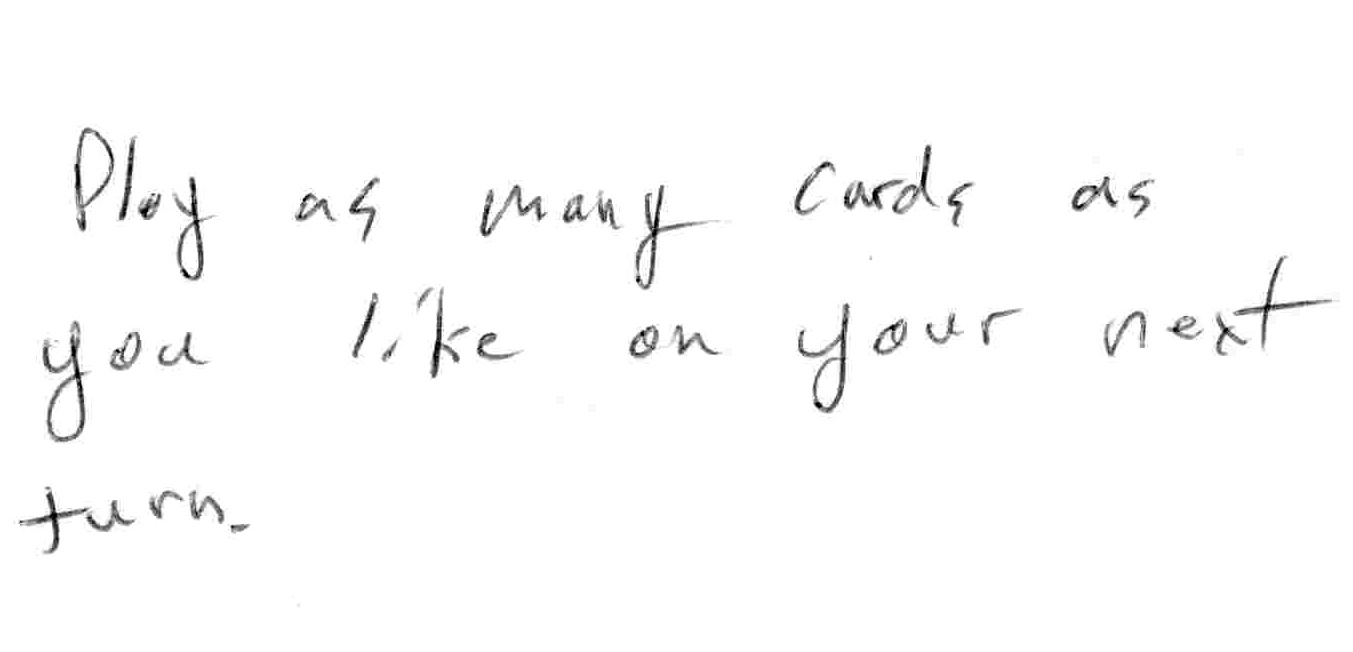 Play as many cards as
you like on your next
turn.